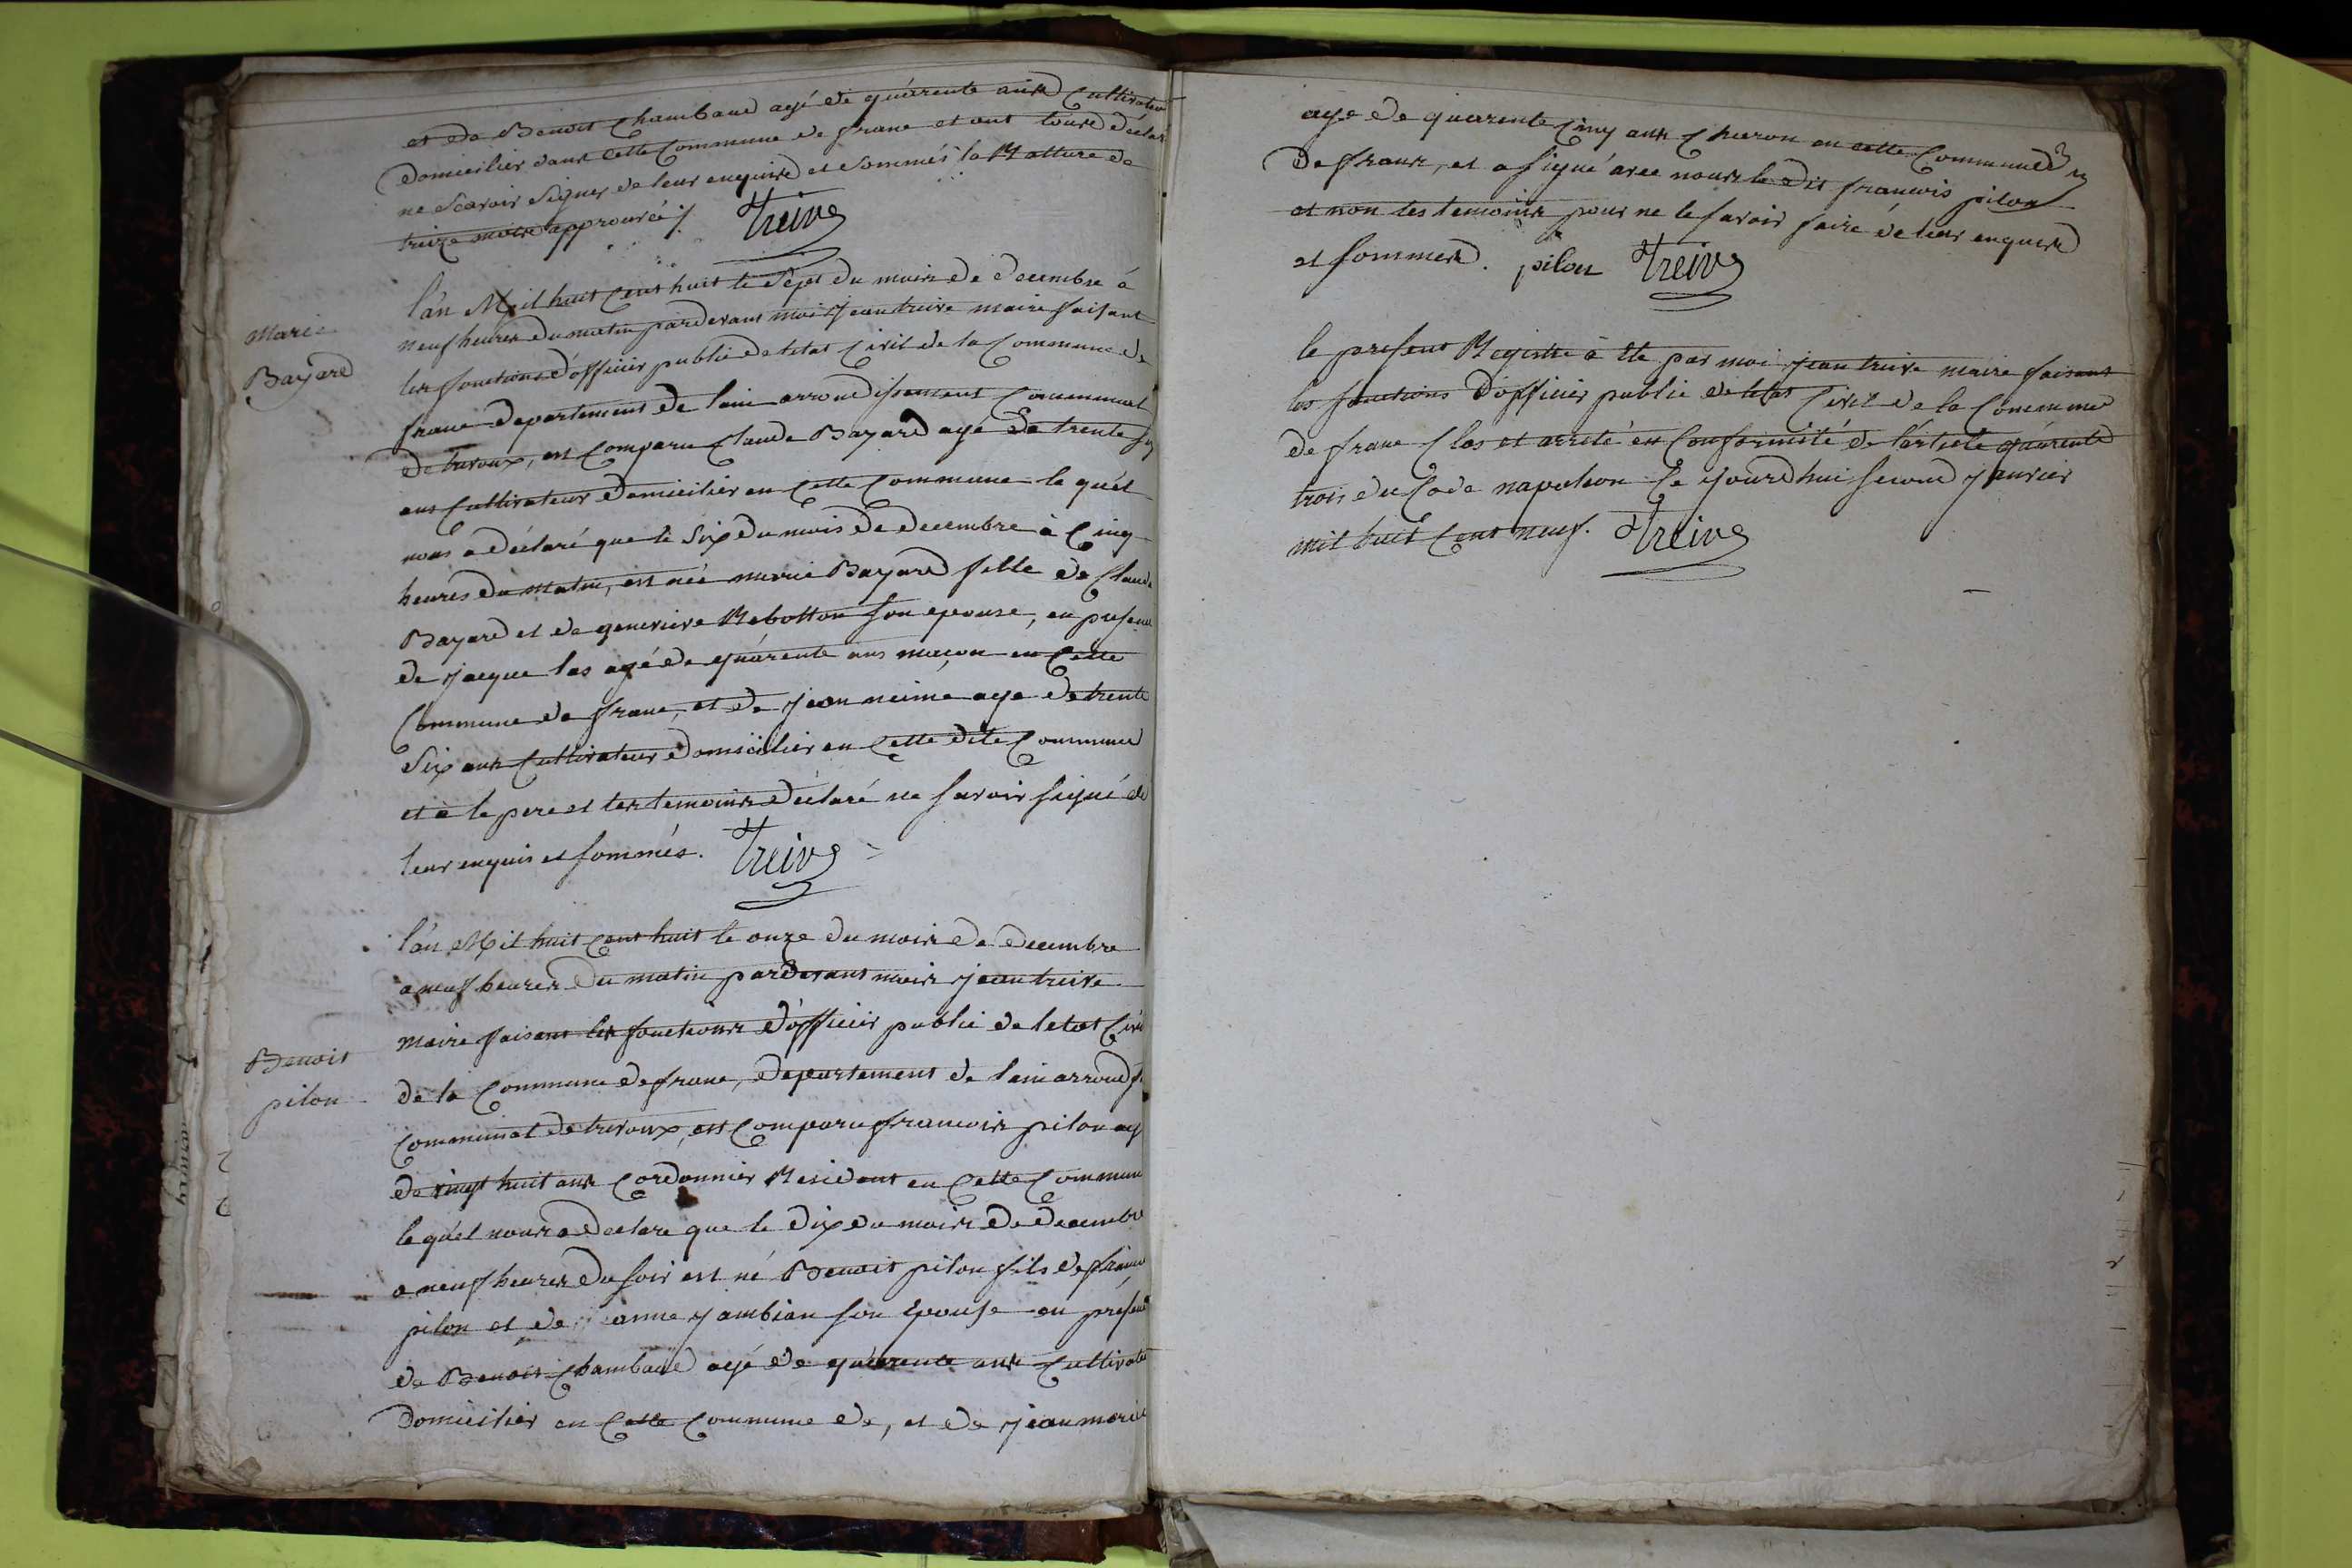 et de Benoit Chambaud agé de quarente ans Cultivateur
Domicilier dans cette Commune de franc et ont tous déclaré
ne scavoir signer de leur enquire et sommés la Rature de
treize mots approuvée /. Treive
Marie
Bayard
l'an Mil huit Cent huit le Sept du mois de decembre à
neuf heures du matin pardevant moi jean treive maire faisant
les fonctions d'officier public de letat Civil de la Commune de
franc departement de lain arrondissement Communal
de trevoux, est Comparu Claude Bayard agé de trente
ans Cultivateur Domicilier en Cette Commune le quel
nous a déclaré que le Six du mois de decembre à Cinq
heures du matin, est née marie Bayard fille de Claude
Bayard et de genevieve Rebotton son epouse, en presence
de jacque las agé de quarente ans maçon en Cette
Commune de franc, et de jean neime age de trente
Six ans Cultivateur Domicilier en Cette dite Commune
et a le pere et les temoins déclaré ne savoir signé de
leur enquis et sommés. Treive
Benoit
pilon
l'an Mil huit Cent huit le onze du mois de decembre
a neuf heures du matin pardevant mois jean treive
maire faisant les fonctions d'officier public de letat Civil
de la Commune de franc, departement de lain arrondis
Communal de trevoux, est Comparu francois pilon agé
de vingt huit ans Cordonnier Residant en Cette Commune
le quel nous a declare que le dix du mois de decembre
a neuf heures du soir est né Benoit pilon fils de francois
pilon et de anne jambian son Epouse en présence
de Benoit Chambaud agé de quarente ans Cultivateur
Domicilier en Cette Commune de, et de jean marie
age de quarente Cinq ans Charon en cette Commune
de franc, et a signé avec nous le dit francois pilon
et non les temoins pour ne le savoir faire de leur enquire
et sommers. pilon Treive
le present Registre à Ete par moi jean treive maire faisant
les fonctions D'officier public de letat Civil de la Commune
de franc Clos et arreté en Conformité de l'article quarente
trois du Code napoleon Ce jourdhui second janvier
mil huit Cent neuf. Treive